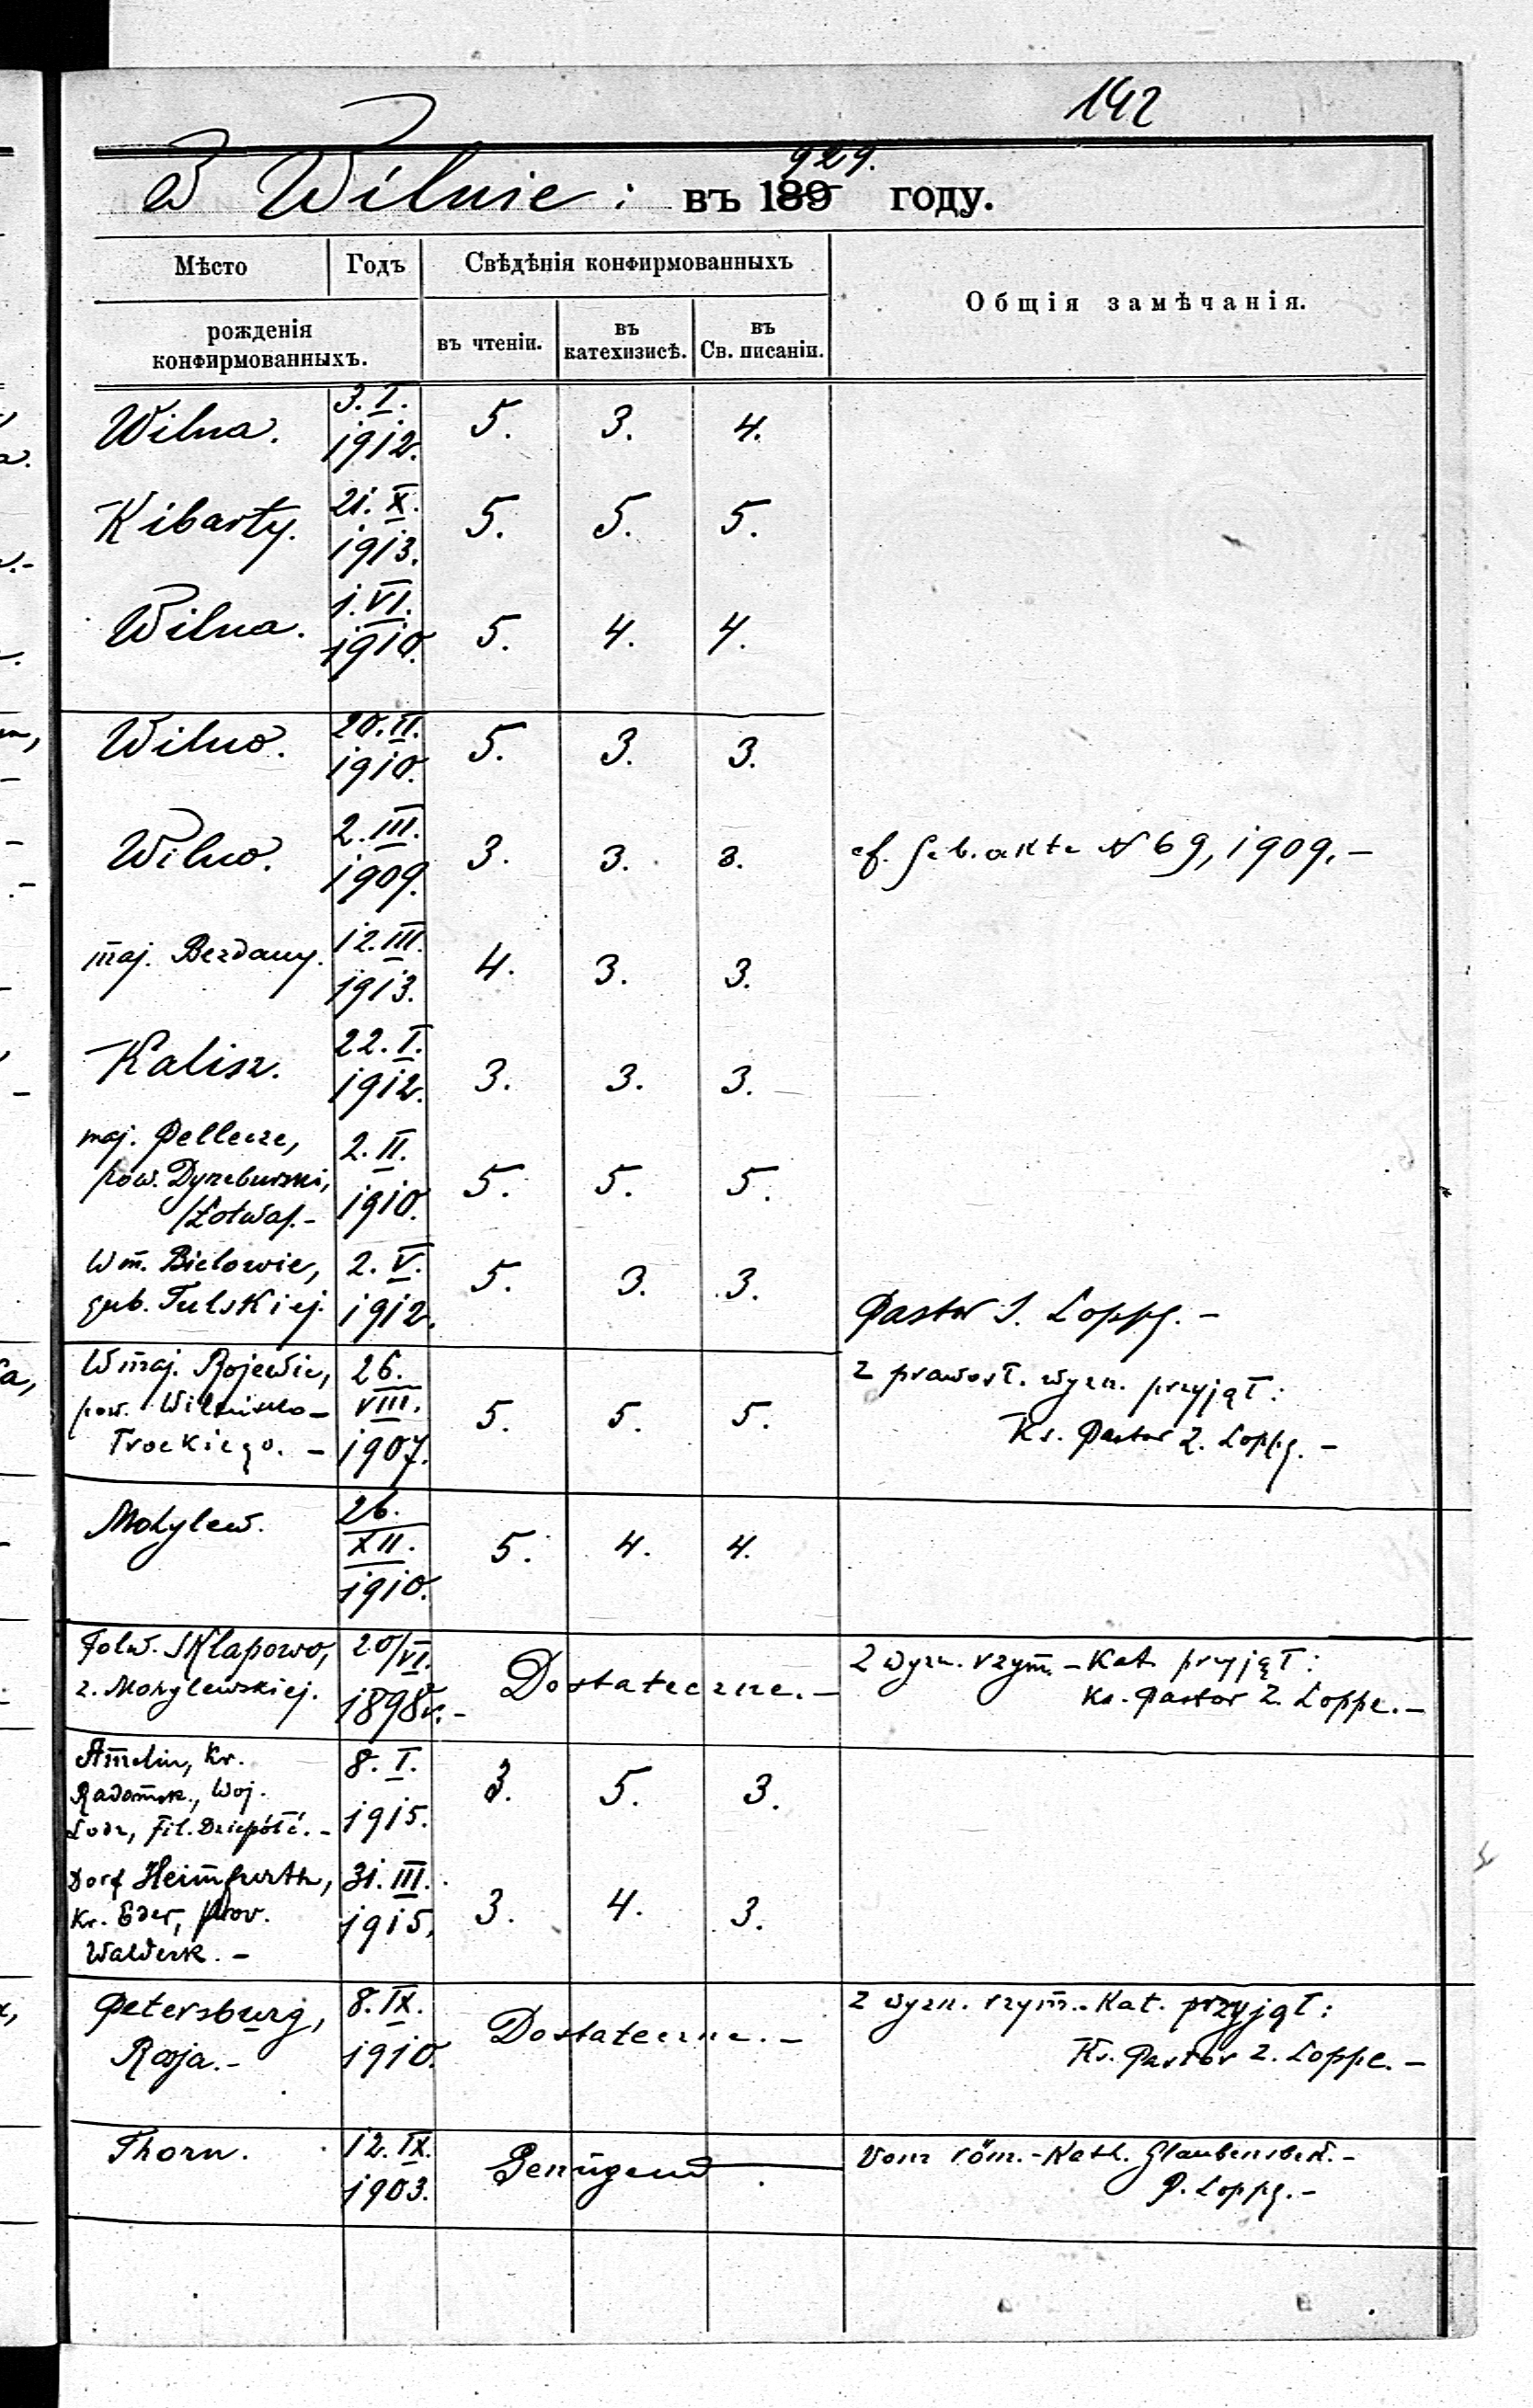 142
W Wilnie: въ 189 929. году.
Мѣсто Годъ Свѣдѣнія конфирмованныхъ Общія замѣчанія.
рожденія конфирмованныхъ. въ чтеніи. въ катехизисѣ. въ Св. писаніи.
Wilna. 3. I. 1912. 5. 3. 4.
Kibarty. 21. X. 1913. 5. 5. 5.
Wilna. 1. VI. 1910. 5. 4. 4.
Wilno. 20. II. 1910. 5. 3. 3.
Wilno. 2. III. 1909. 3. 3. 3. cf. Geb. akte № 69, 1909. –
maj. Bezdany. 12. III. 1913. 4. 3. 3.
Kalisz. 22. I. 1912. 3. 3. 3.
maj. Pellecze,
pow. Dyneburski, 2. II. 1910. 5. 5. 5.
/Łotwa/. –
W m. Bielowie, 2. V. 1912. 5. 3. 3.
gub. Tulskiej. Pastor S. Loppe. –
W maj. Rojewie, 26. VIII. 1907. 5. 5. 5. z prawosł. wyzn. przyjął:
pow. Wileńsko – Ks. Pastor Z. Loppe. –
Trockiego. –
Mohylew. 26. XII. 1910. 5. 4. 4.
Folw. Sklapowo, 20/VI. 1898 r. – Dostateczne. – Z wyzn. rzym. – Kat. przyjął:
z. Mohylewskiej. Ks. Pastor Z. Loppe. –
Amelin, Kr. 8. I. 1915. 3. 5. 3.
Radomsk., Woj.
Lodz, Fil. Dziepółć. –
Dorf Heimfurth, 31. III. 1915. 3. 4. 3.
Kr. Eder, Prov.
Waldeck. –
Petersburg, 8. IX. 1910. Dostateczne. – Z wyzn. rzym. – Kat. przyjął:
Rosja. – Ks. Pastor Z. Loppe. –
Thorn. 12. IX. 1903. Genügend. Vom röm. – Kath. Glaubensbek. –
P. Loppe. –